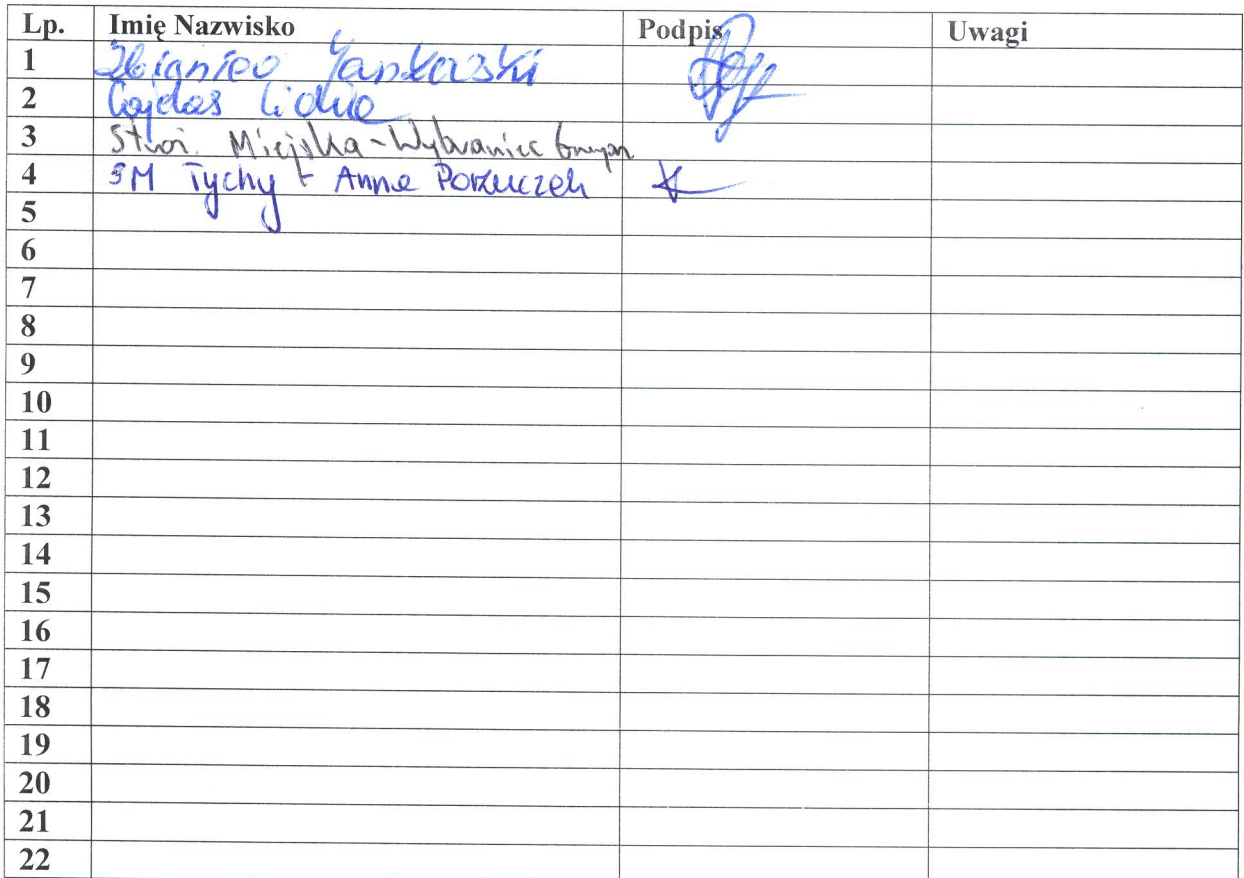 Lp. Imię Nazwisko Podpis Uwagi
1 Zbigniew
2 Gajdas Lidia
3 Straż. Miejska - Wybraniec
4 SM Tychy - Anna Porzuczek
5
6
7
8
9
10
11
12
13
14
15
16
17
18
19
20
21
22